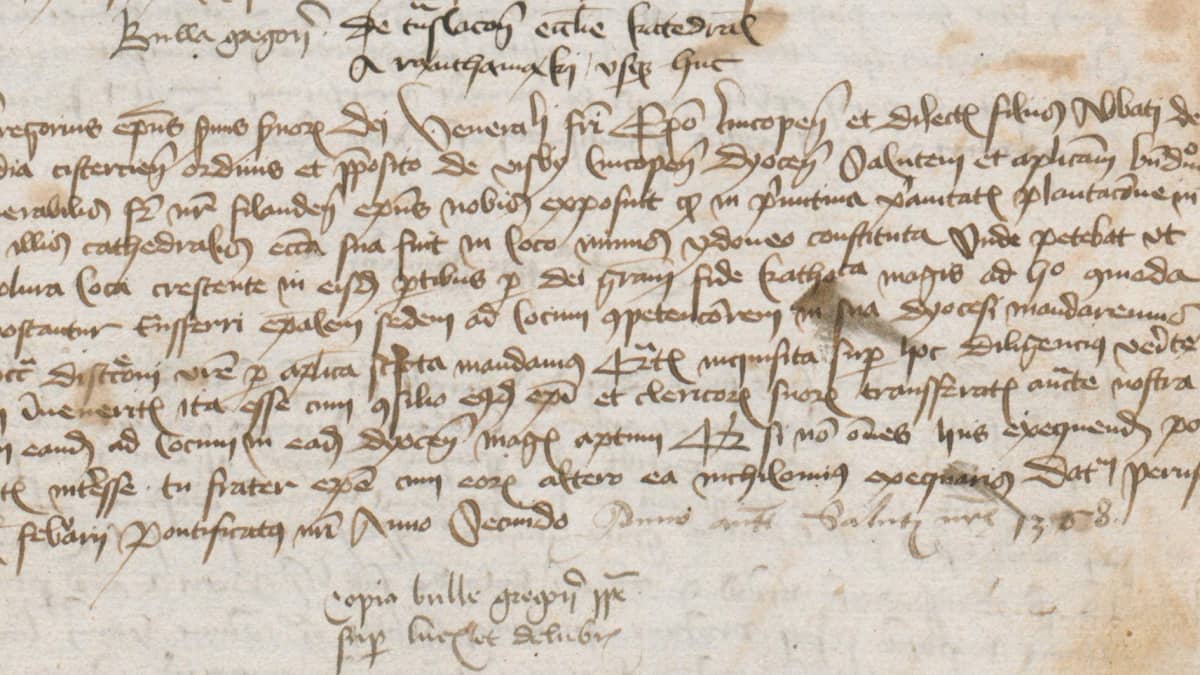 Bulla gregorii De translacione ecclesie katedralis
A ranthamaki usque huc
regorius episcopus servus servorum dei Venerabili fratri Episcopo lincopensi et dilectis filiis Abbati de
dia cisterciensis ordinis et preposito de visby lincopensis dyocesis Salutem et apostolicam benedictionem
nerabilis frater noster filandensis episcopus nobis exposuit quod in primitiva christianitatis plantacione in
illis cathedralis ecclesia sua fuit in loco minus ydoneo constituta Unde petebat ut
plura loca crescente in eisdem partibus per dei gratiam fide katholica magis ad hoc commoda
transferri episcopalem sedem ad locum competenciorem in sua dyocesi mandaremus
discretioni vestre per apostolica scripta mandamus quatenus inquisita super hoc diligencius veritate
inveneritis ita esse cum consilio eiusdem episcopi et clericorum suorum transferatis auctoritate nostra
eandem ad locum in eadem dyocesi magis aptum Quod si non omnes hiis exequendis po
interesse tu frater episcope cum eorum altero ea nichilominus exequaris Datum perusii
februarii Pontificatus nostri Anno Secundo Anno salutis nostre
Copia bulle gregorii pape
super lucis et delubris